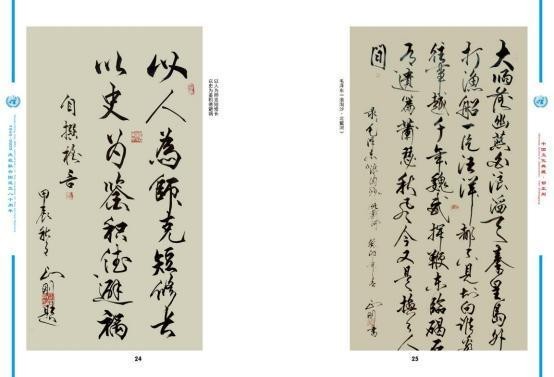 以人为师克短修长
以史为鉴积德避祸
以人為師克短修长
以史为鉴积德避祸
自撰格言
甲辰秋月正刚题
24
毛泽东《浪淘沙·北戴河》
大雨落幽燕白浪滔天秦皇島外
打漁船一片汪洋都不見知向誰邊
往事越千年魏武揮鞭東臨碣石
有遺篇蕭瑟秋風今又是換了人
間
录毛泽东浪淘沙北戴河
正刚书
25